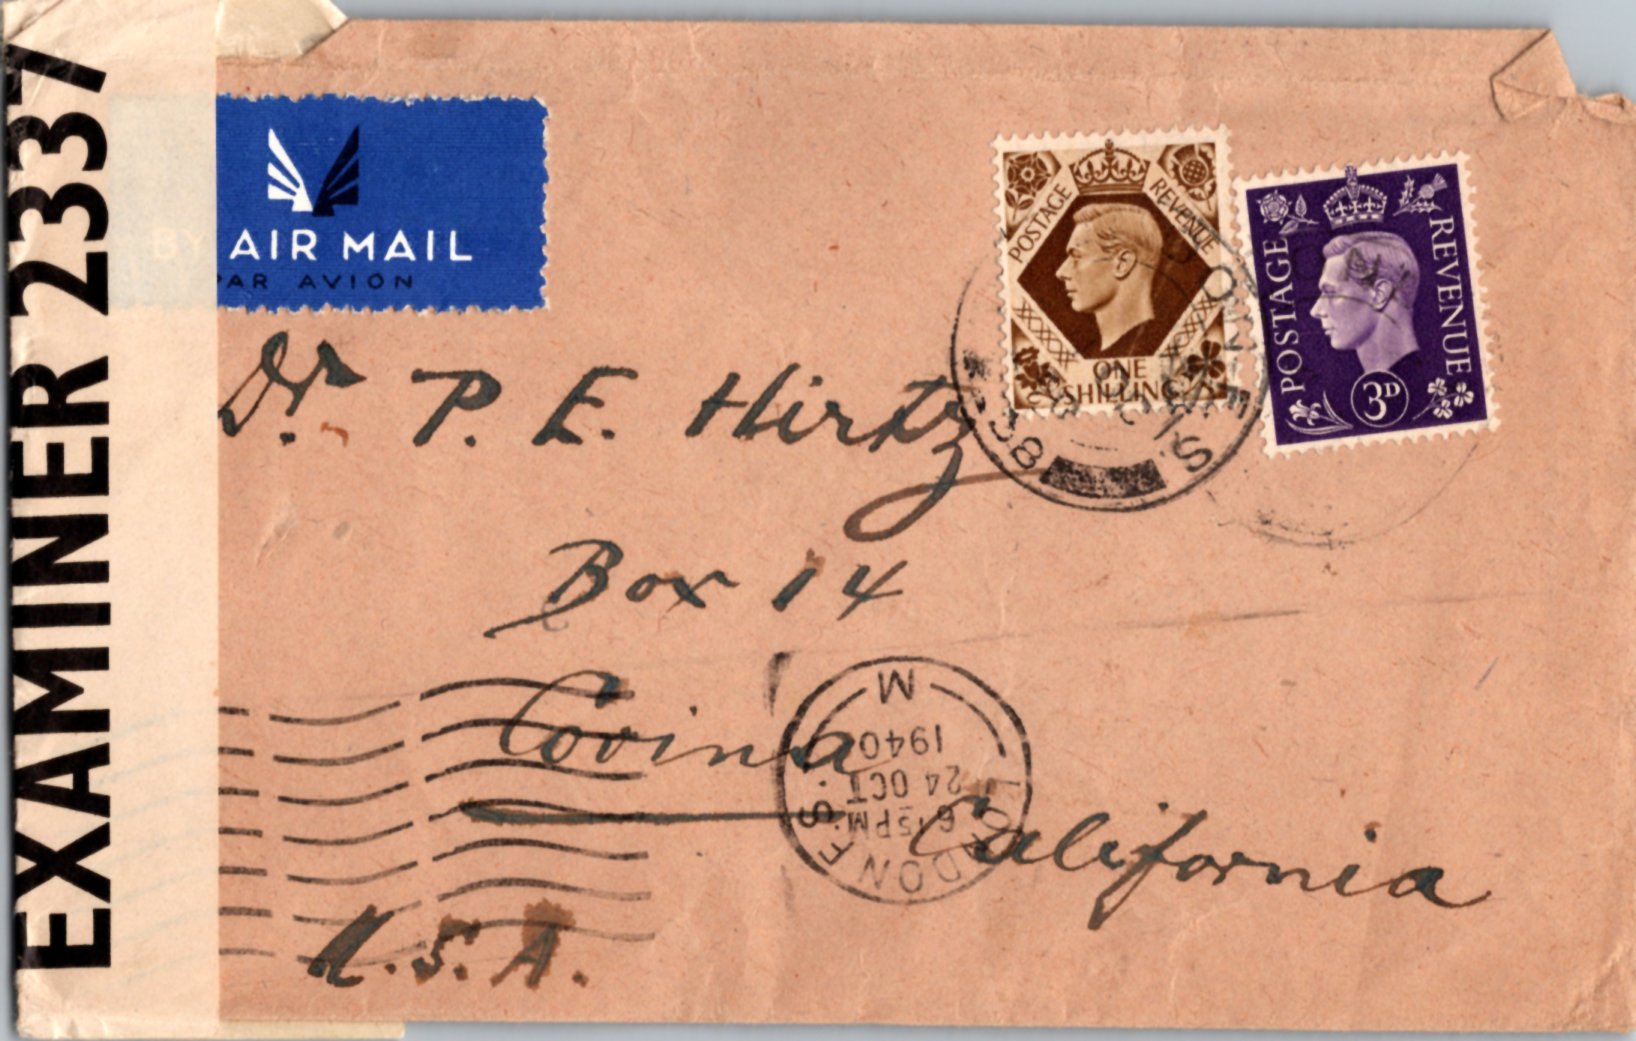 EXAMINER 2337
BY AIR MAIL
PAR AVION
POSTAGE REVENUE
ONE
SHILLING
POSTAGE REVENUE
3D
Dr. P. E. Hirtz
Box 14
Covina
California
U.S.A.
LONDON F.S.
6 15 PM
24 OCT
1940
M